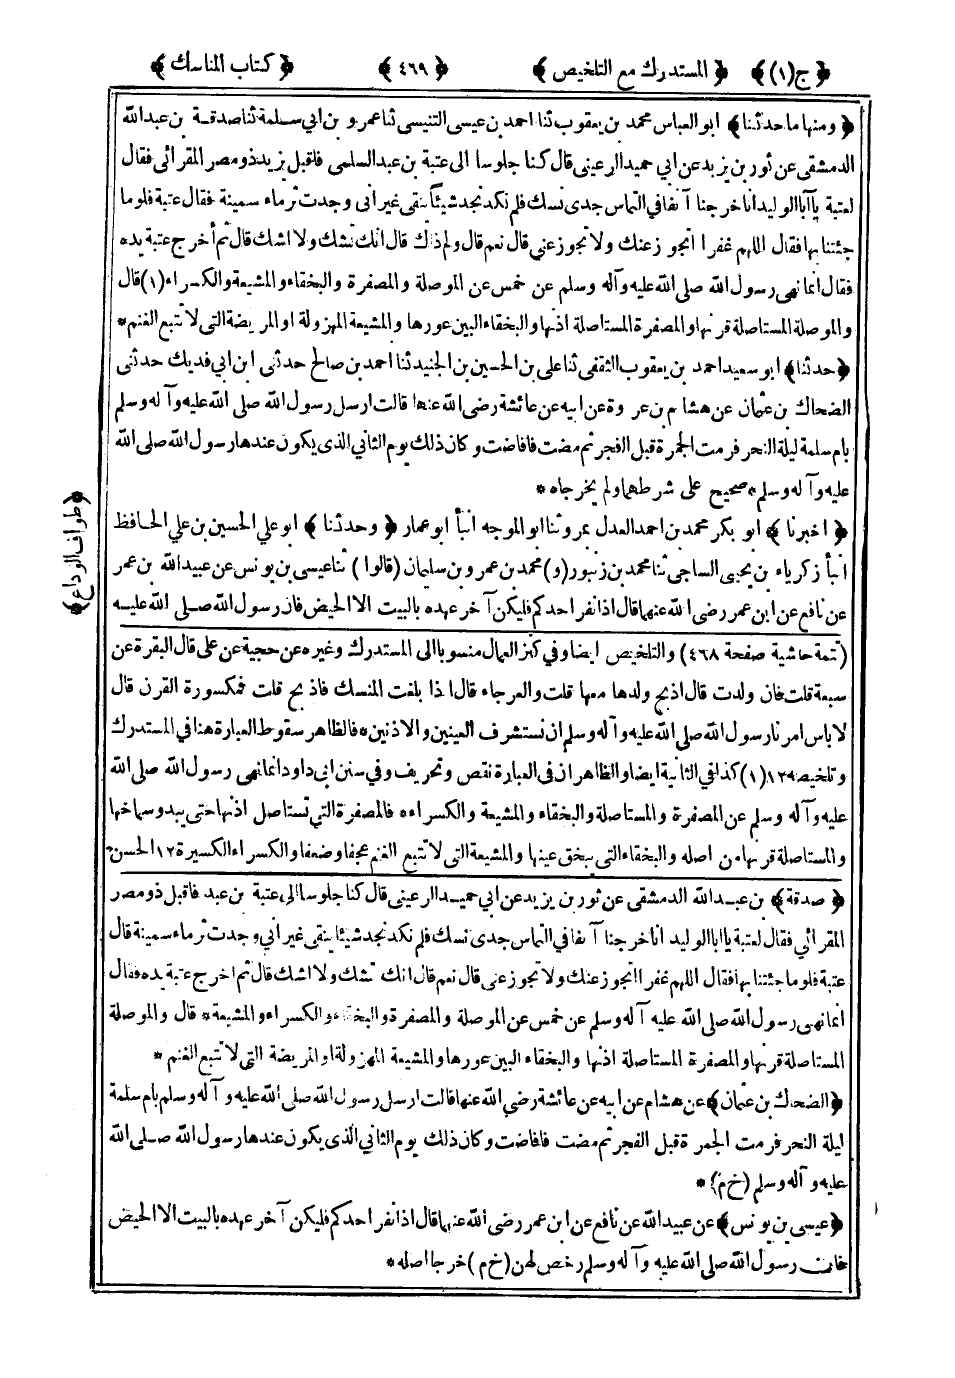 ﴿ج(١)﴾ ﴿المستدرك مع التلخيص﴾ ﴿٤٦٩﴾ ﴿كتاب المناسك﴾
﴿ومنها ما حدثنا﴾ ابو العباس محمد بن يعقوب ثنا احمد بن عيسى التنيسى ثنا عمرو بن ابي سلمة ثنا صدقة بن عبدالله
الدمشقى عن ثور بن يزيد عن ابي حميد الرعينى قال كنا جلوسا الى عتبة بن عبد السلمى فاقبل يزيد ذو مصر المقرائى فقال
لعتبة يا ابا الوليد انا خرجنا آنفا في التماس جدى نسك فلم نكد نجد شيئا ينقى غير انى وجدت ثرماء سمينة فقال عتبة فلوما
جئتنا بها فقال اللهم غفرا اتجوز عنك ولا تجوز عني قال نعم قال ولم ذلك قال انك تشك ولا اشك قال ثم أخرج عتبة يده
فقال انما نهى رسول الله صلى الله عليه وآله وسلم عن خمس عن الموصلة والمصفرة والبخقاء والمشيعة والكسراء(١) قال
والموصلة المستاصلة قرنها والمصفرة المستاصلة اذنها والبخقاء البين عورها والمشيعة المهزولة او المريضة التى لا تتبع الغنم*
﴿حدثنا﴾ ابو سعيد احمد بن يعقوب الثقفى ثنا على بن الحسين بن الجنيد ثنا احمد بن صالح حدثنى ابن ابي فديك حدثنى
الضحاك بن عثمان عن هشام بن عروة عن ابيه عن عائشة رضى الله عنها قالت ارسل رسول الله صلى الله عليه وآله وسلم
بام سلمة ليلة النحر فرمت الجمرة قبل الفجر ثم مضت فافاضت وكان ذلك يوم الثاني الذى يكون عندها رسول الله صلى الله
عليه وآله وسلم* صحيح على شرطهما ولم يخرجاه*
﴿اخبرنا﴾ ابو بكر محمد بن احمد العدل بمرو ثنا ابو الموجه انبأ ابو عمار ﴿وحدثنا﴾ ابو علي الحسين بن علي الحافظ
انبأ زكرياء بن يحيى الساجى ثنا محمد بن زنبور (و) محمد بن عمرو بن سليمان (قالوا) ثنا عيسى بن يونس عن عبيد الله بن عمر
عن نافع عن ابن عمر رضى الله عنهما قال اذا نفر احدكم فليكن آخر عهده بالبيت الا الحيض فان رسول الله صلى الله عليه
﴿طواف الوداع﴾
(تتمة حاشية صفحة ٤٦٨) والتلخيص ايضا وفي كنز العمال منسوبا الى المستدرك وغيره عن حجية عن على قال البقرة عن
سبعة قلت فان ولدت قال اذبح ولدها معها قلت والعرجاء قال اذا بلغت المنسك فاذبح قلت فمكسورة القرن قال
لا باس امرنا رسول الله صلى الله عليه وآله وسلم ان نستشرف العينين والاذنين* فالظاهر سقوط العبارة هنا في المستدرك
وتلخيصه ١٢ (١) كذا في الثانية ايضا والظاهر ان في العبارة نقص وتحريف وفي سنن ابي داود انما نهى رسول الله صلى الله
عليه وآله وسلم عن المصفرة والمستاصلة والبخقاء والمشيعة والكسراء* فالمصفرة التي تستاصل اذنها حتى يبدو سماخها
والمستاصلة قرنها من اصله والبخقاء التى ببخق عينها والمشيعة التى لا تتبع الغنم عجفا وضعفا والكسراء الكسيرة ١٢ الحسن
﴿صدقة﴾ بن عبد الله الدمشقى عن ثور بن يزيد عن ابي حميد الرعينى قال كنا جلوسا الى عتبة بن عبد فاقبل ذو مصر
المقرائي فقال لعتبة يا ابا الوليد انا خرجنا آنفا في التماس جدى نسك فلم نكد نجد شيئا ينقى غير اني وجدت ثرماء سمينة قال
عتبة فلوما جئتنا بها فقال اللهم غفرا اتجوز عنك ولا تجوز عنى قال نعم قال انك تشك ولا اشك قال ثم اخرج عتبة يده فقال
انما نهى رسول الله صلى الله عليه آله وسلم عن خمس عن الموصلة والمصفرة والبخقاء والكسراء والمشيعة* قال والموصلة
المستاصلة قرنها والمصفرة المستاصلة اذنها والبخقاء البين عورها والمشيعة المهزولة او المريضة التى لا تتبع الغنم*
﴿الضحاك بن عثمان﴾ عن هشام عن ابيه عن عائشة رضى الله عنها قالت ارسل رسول الله صلى الله عليه وآله وسلم بام سلمة
ليلة النحر فرمت الجمرة قبل الفجر ثم مضت فافاضت وكان ذلك يوم الثاني الذى يكون عندها رسول الله صلى الله
عليه وآله وسلم (خ م)*
﴿عيسى بن يونس﴾ عن عبيد الله عن نافع عن ابن عمر رضى الله عنهما قال اذا نفر احدكم فليكن آخر عهده بالبيت الا الحيض
فان رسول الله صلى الله عليه وآله وسلم رخص لهن (خ م) خرجا اصله*